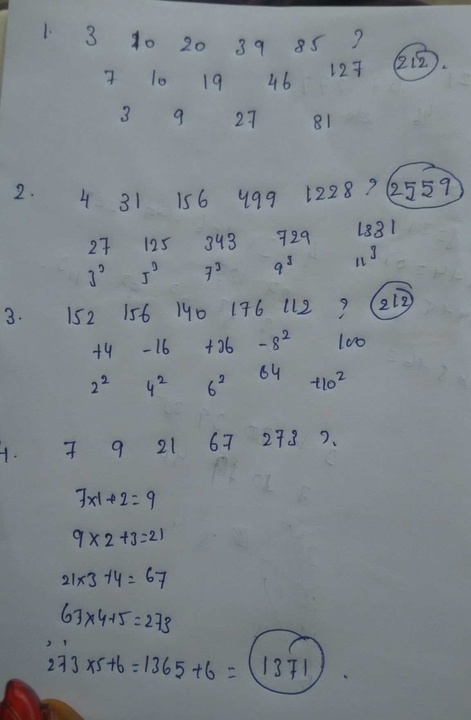 1. 3 10 20 39 85 ?
7 10 19 46 127 212.
3 9 27 81
2. 4 31 156 499 1228 ? 2559
27 125 343 729 1331
3³ 5³ 7³ 9³ 11³
3. 152 156 140 176 112 ? 212
+4 -16 +36 -8² 100
2² 4² 6² 64 +10²
4. 7 9 21 67 273 ?.
7x1+2=9
9x2+3=21
21x3+4=67
67x4+5=273
273x5+6=1365+6= 1371.